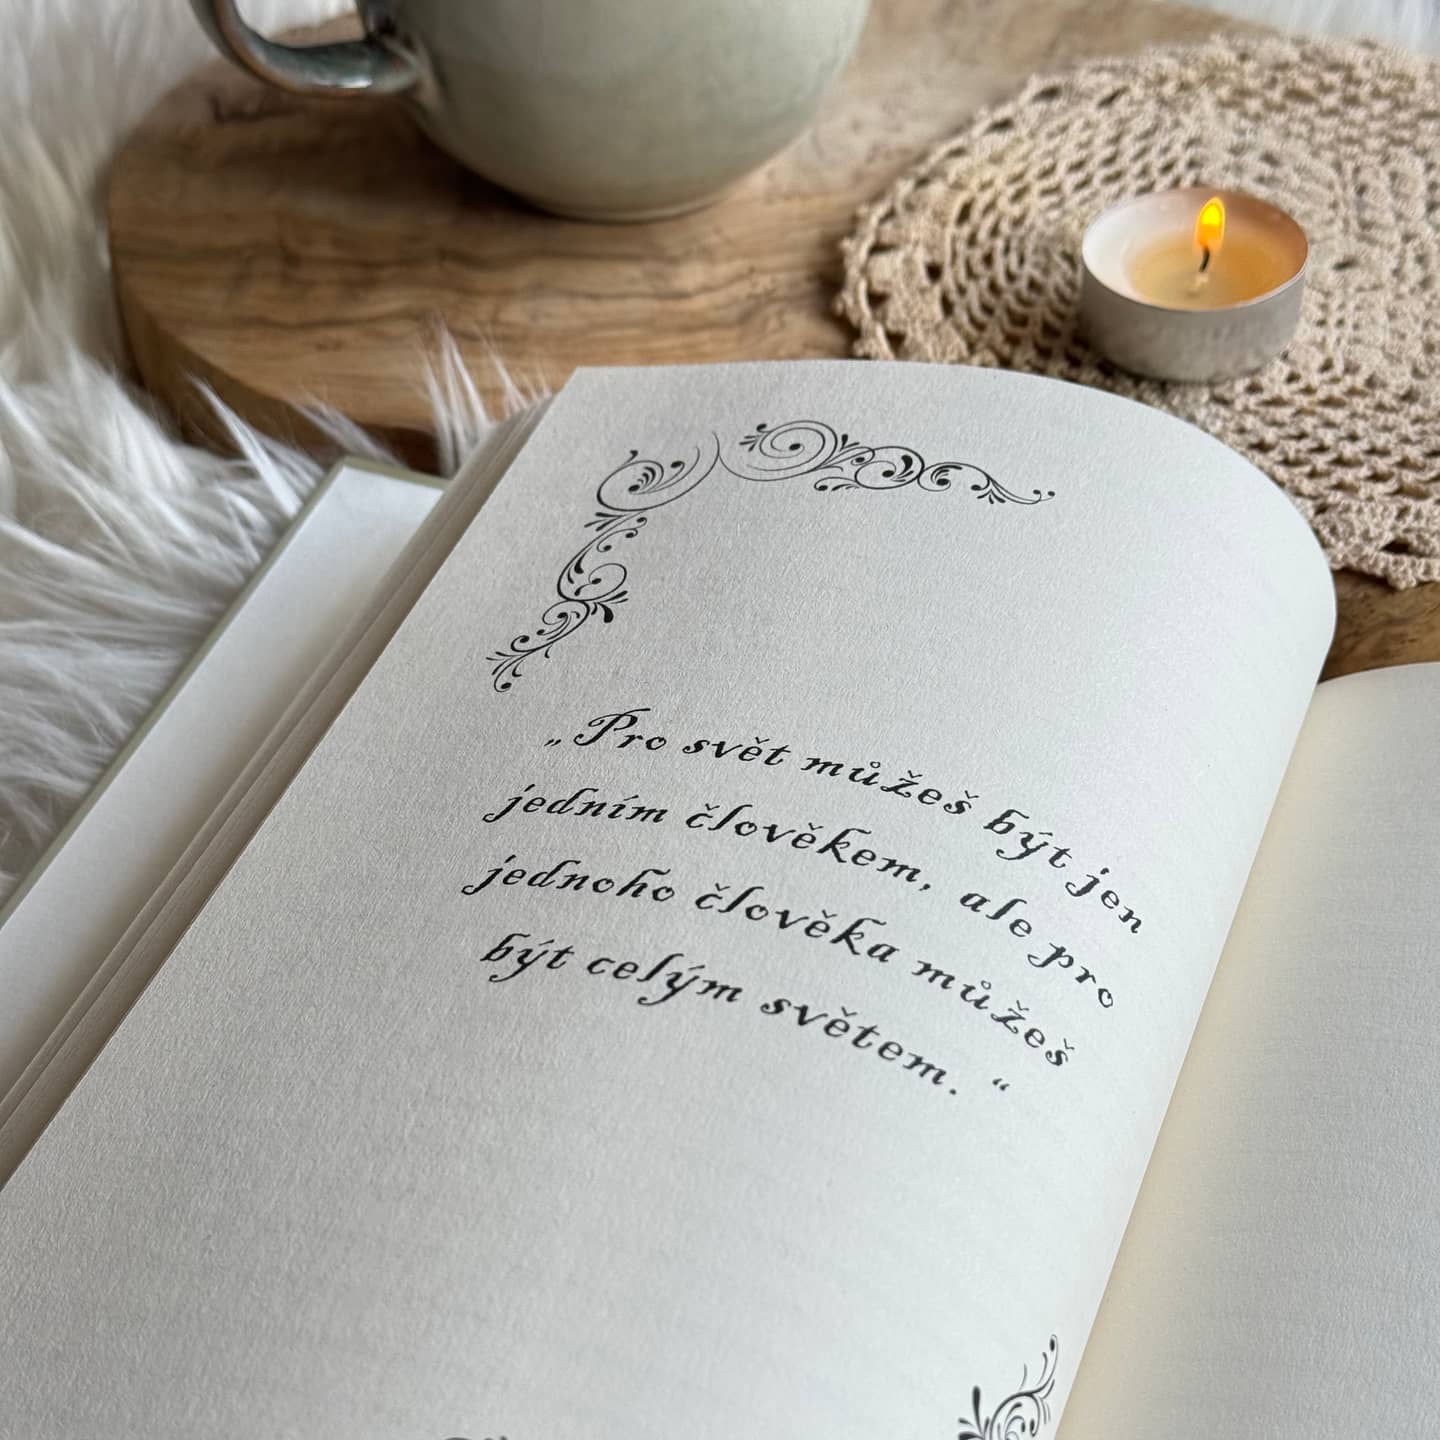 „Pro svět můžeš být jen
jedním člověkem, ale pro
jednoho člověka můžeš
být celým světem.“